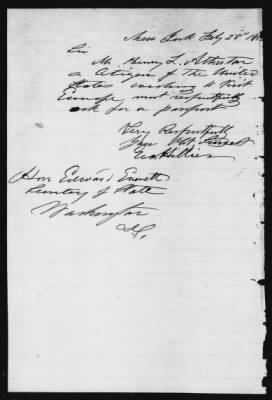 New York Feby 28th
Sir
Mr. Henry L. Atherton
a Citizen of the United
States wishing to visit
Europe most respectfully
ask for a passport
Very Respectfully
Your Obt Servant
Hon Edward Everett
Secretary of State
Washington